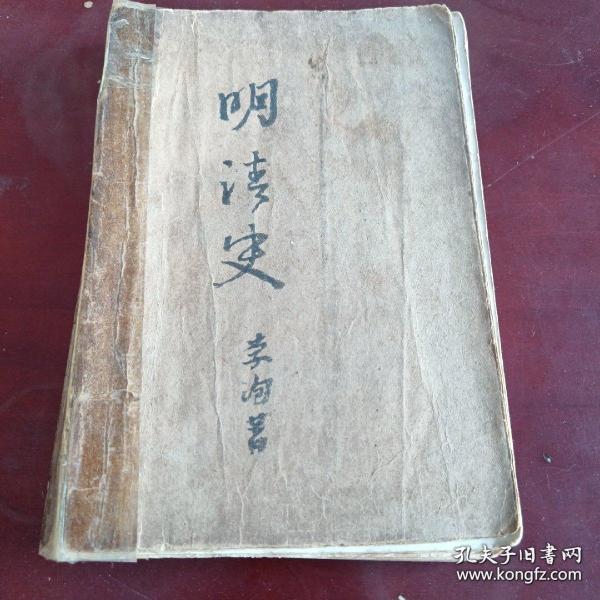 明清史
李洵著
孔夫子旧书网
www.kongfz.com